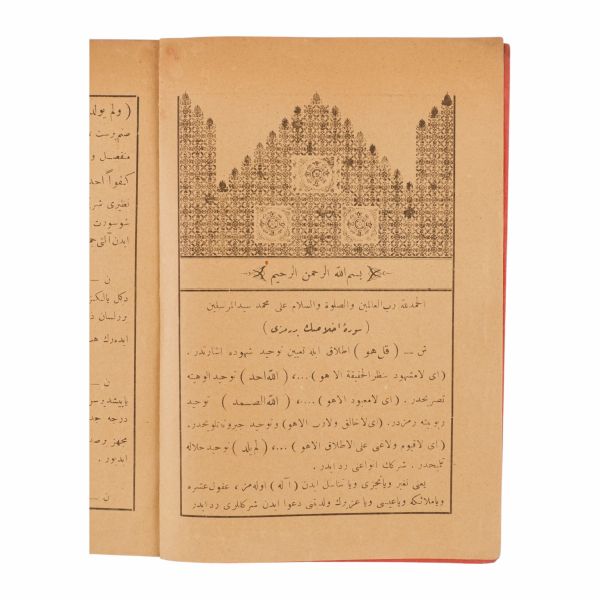 بسم الله الرحمن الرحيم
الحمدلله رب العالمين والصلوة والسلام على محمد سيدالمرسلين
( سورۀ اخلاصك بررمزى )
ش — ( قل هو ) اطلاق ايله تعيين توحيد شهوده اشارتدر .
( اى لامشهود بنظر الحقيقة الا هو ) ....، ( الله احد ) توحيد الوهيته
تصريحدر . ( اى لامعبود الا هو ) ....، ( الله الصمد ) توحيد
ربوبيته رمزدر . ( اى لاخالق ولارب الا هو ) وتوحيد جبروته تلويحدر .
( اى لاقيوم ولاغنى على الاطلاق الا هو ) ....، ( لم يلد ) توحيد جلاله
تلميحدر . شركك انواعنى رد ايدر .
يعنى تغير وياتجزى وياتناسل ايدن ( اله ) اوله مز . عقول عشره
وياملائكه وياعيسى وياعزيرك ولدلغنى دعوا ايدن شركلرى رد ايدر
( ولم يولد
كفوا احد